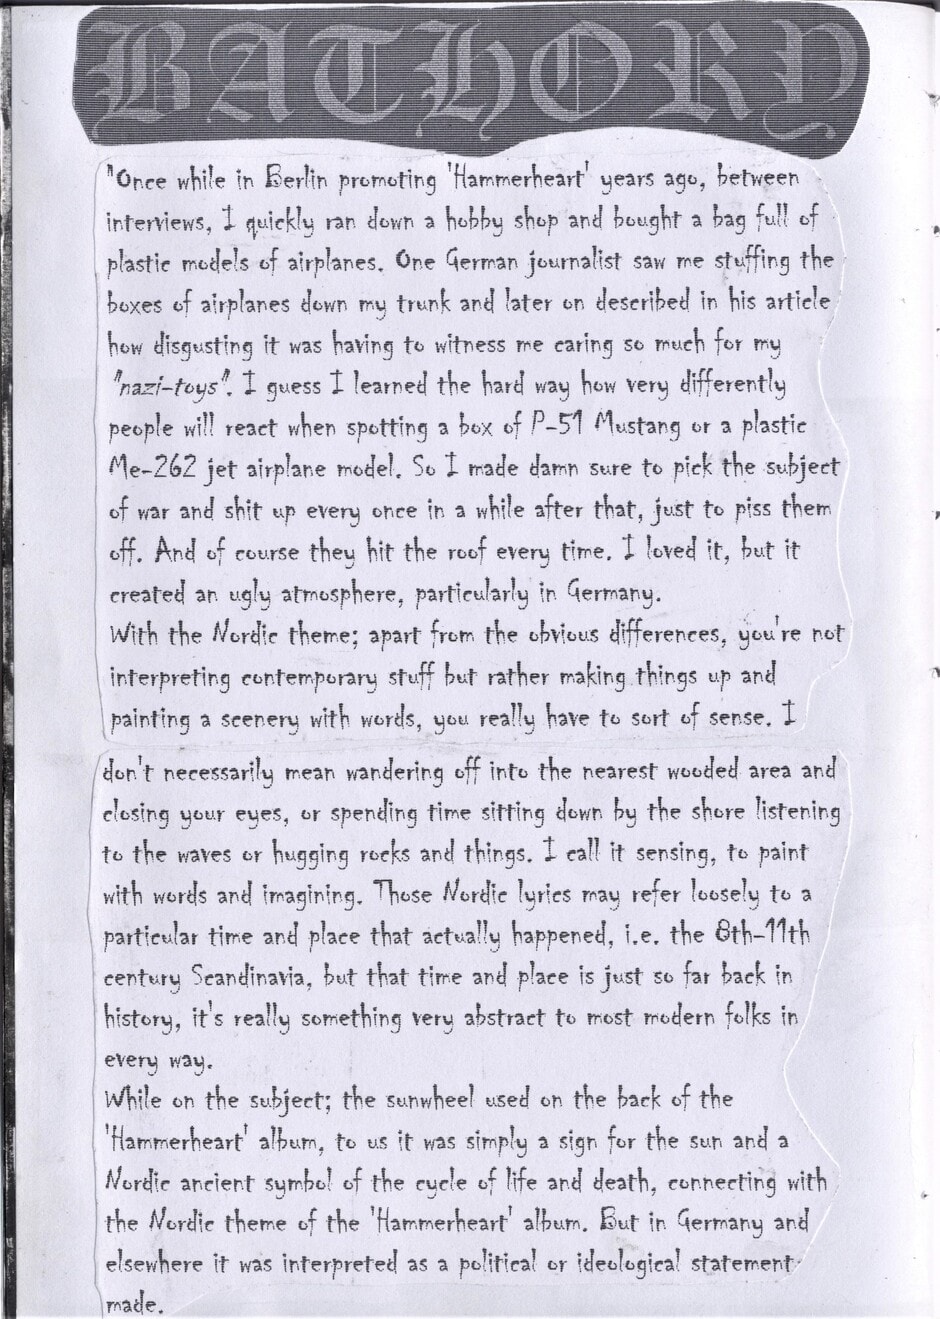 BATHORY
"Once while in Berlin promoting 'Hammerheart' years ago, between
interviews, I quickly ran down a hobby shop and bought a bag full of
plastic models of airplanes. One German journalist saw me stuffing the
boxes of airplanes down my trunk and later on described in his article
how disgusting it was having to witness me caring so much for my
"nazi-toys". I guess I learned the hard way how very differently
people will react when spotting a box of P-51 Mustang or a plastic
Me-262 jet airplane model. So I made damn sure to pick the subject
of war and shit up every once in a while after that, just to piss them
off. And of course they hit the roof every time. I loved it, but it
created an ugly atmosphere, particularly in Germany.
With the Nordic theme; apart from the obvious differences, you're not
interpreting contemporary stuff but rather making things up and
painting a scenery with words, you really have to sort of sense. I
don't necessarily mean wandering off into the nearest wooded area and
closing your eyes, or spending time sitting down by the shore listening
to the waves or hugging rocks and things. I call it sensing, to paint
with words and imagining. Those Nordic lyrics may refer loosely to a
particular time and place that actually happened, i.e. the 8th-11th
century Scandinavia, but that time and place is just so far back in
history, it's really something very abstract to most modern folks in
every way.
While on the subject; the sunwheel used on the back of the
'Hammerheart' album, to us it was simply a sign for the sun and a
Nordic ancient symbol of the cycle of life and death, connecting with
the Nordic theme of the 'Hammerheart' album. But in Germany and
elsewhere it was interpreted as a political or ideological statement
made.